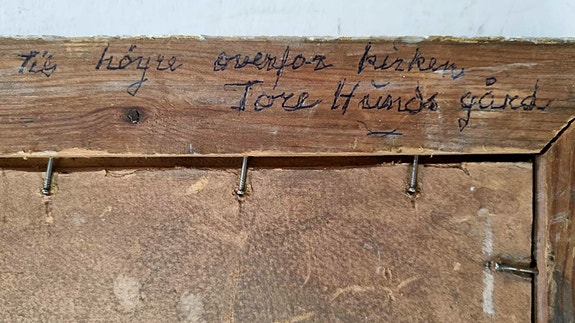 til høyre overfor kirken
Tore Hunds gård